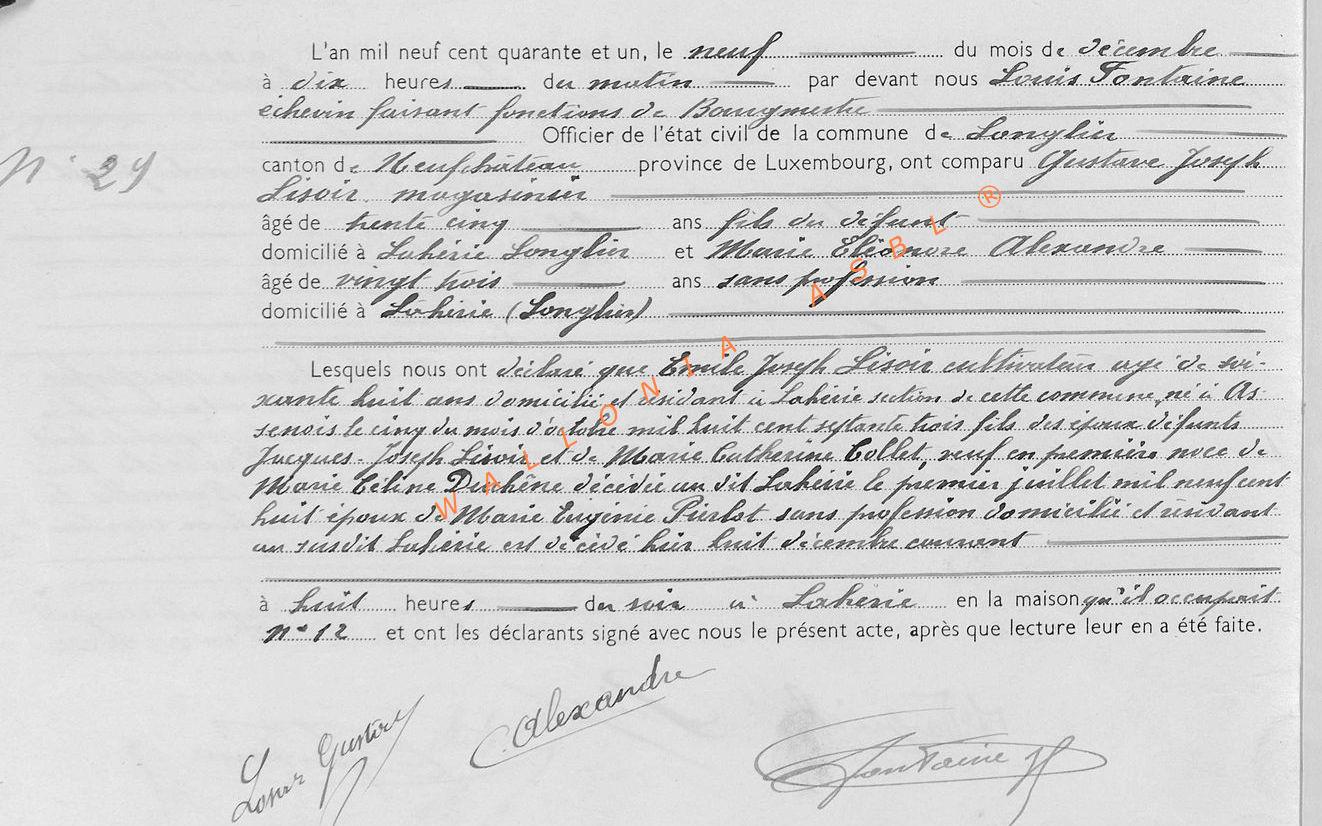 L'an mil neuf cent quarante et un, le neuf du mois de décembre
à dix heures du matin par devant nous Louis Fontaine
échevin faisant fonctions de Bourgmestre
Officier de l'état civil de la commune de Longlier
N° 29
canton de Neufchâteau province de Luxembourg, ont comparu Gustave Joseph
Lisoir magasinier
âgé de trente cinq ans fils du défunt
domicilié à Lahérie Longlier et Marie Eléonore Alexandre
âgé de vingt trois ans sans profession
domicilié à Lahérie (Longlier)
Lesquels nous ont déclaré que Emile Joseph Lisoir cultivateur agé de soi-
xante huit ans domicilié et résidant à Lahérie section de cette commune, né à As-
senois le cinq du mois d'octobre mil huit cent septante trois fils des époux défunts
Jacques-Joseph Lisoir et de Marie Catherine Collet, veuf en première noce de
Marie Céline Duchêne décédée au dit Lahérie le premier juillet mil neuf cent
huit époux de Marie Eugenie Pierlot sans profession domicilié et résidant
au susdit Lahérie est décédé hier huit décembre courant
à huit heures du soir à Lahérie en la maison qu'il occupait
N° 12 et ont les déclarants signé avec nous le présent acte, après que lecture leur en a été faite.
Lisoir Gustave
Alexandre
Fontaine
WALLONIA ASBL ®